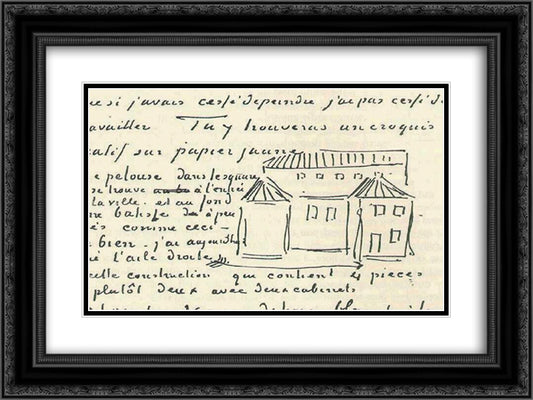 si j'avais cessé de peindre j'ai pas cessé de
availler. Tu y trouveras un croquis
atif sur papier jaune
e pelouse dans le square
se trouve à l'entrée
la ville. et au fond
ne batisse à peu
ès comme ceci -
bien. j'ai aujourd'hui
é l'aile droite
cette construction qui contient 4 pieces
plutôt deux avec deux cabinets